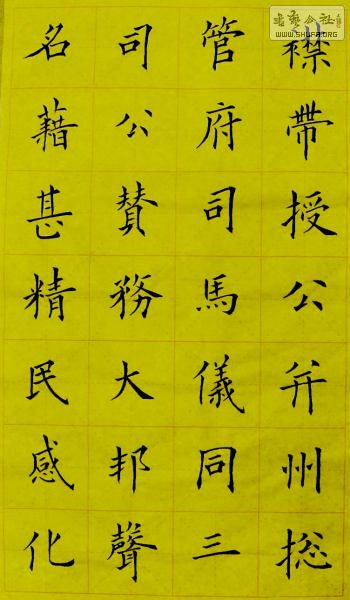 襟帶授公并州捴
管府司馬儀同三
司公賛務大邦聲
名藉甚精民感化
WWW.SHUFA.ORG